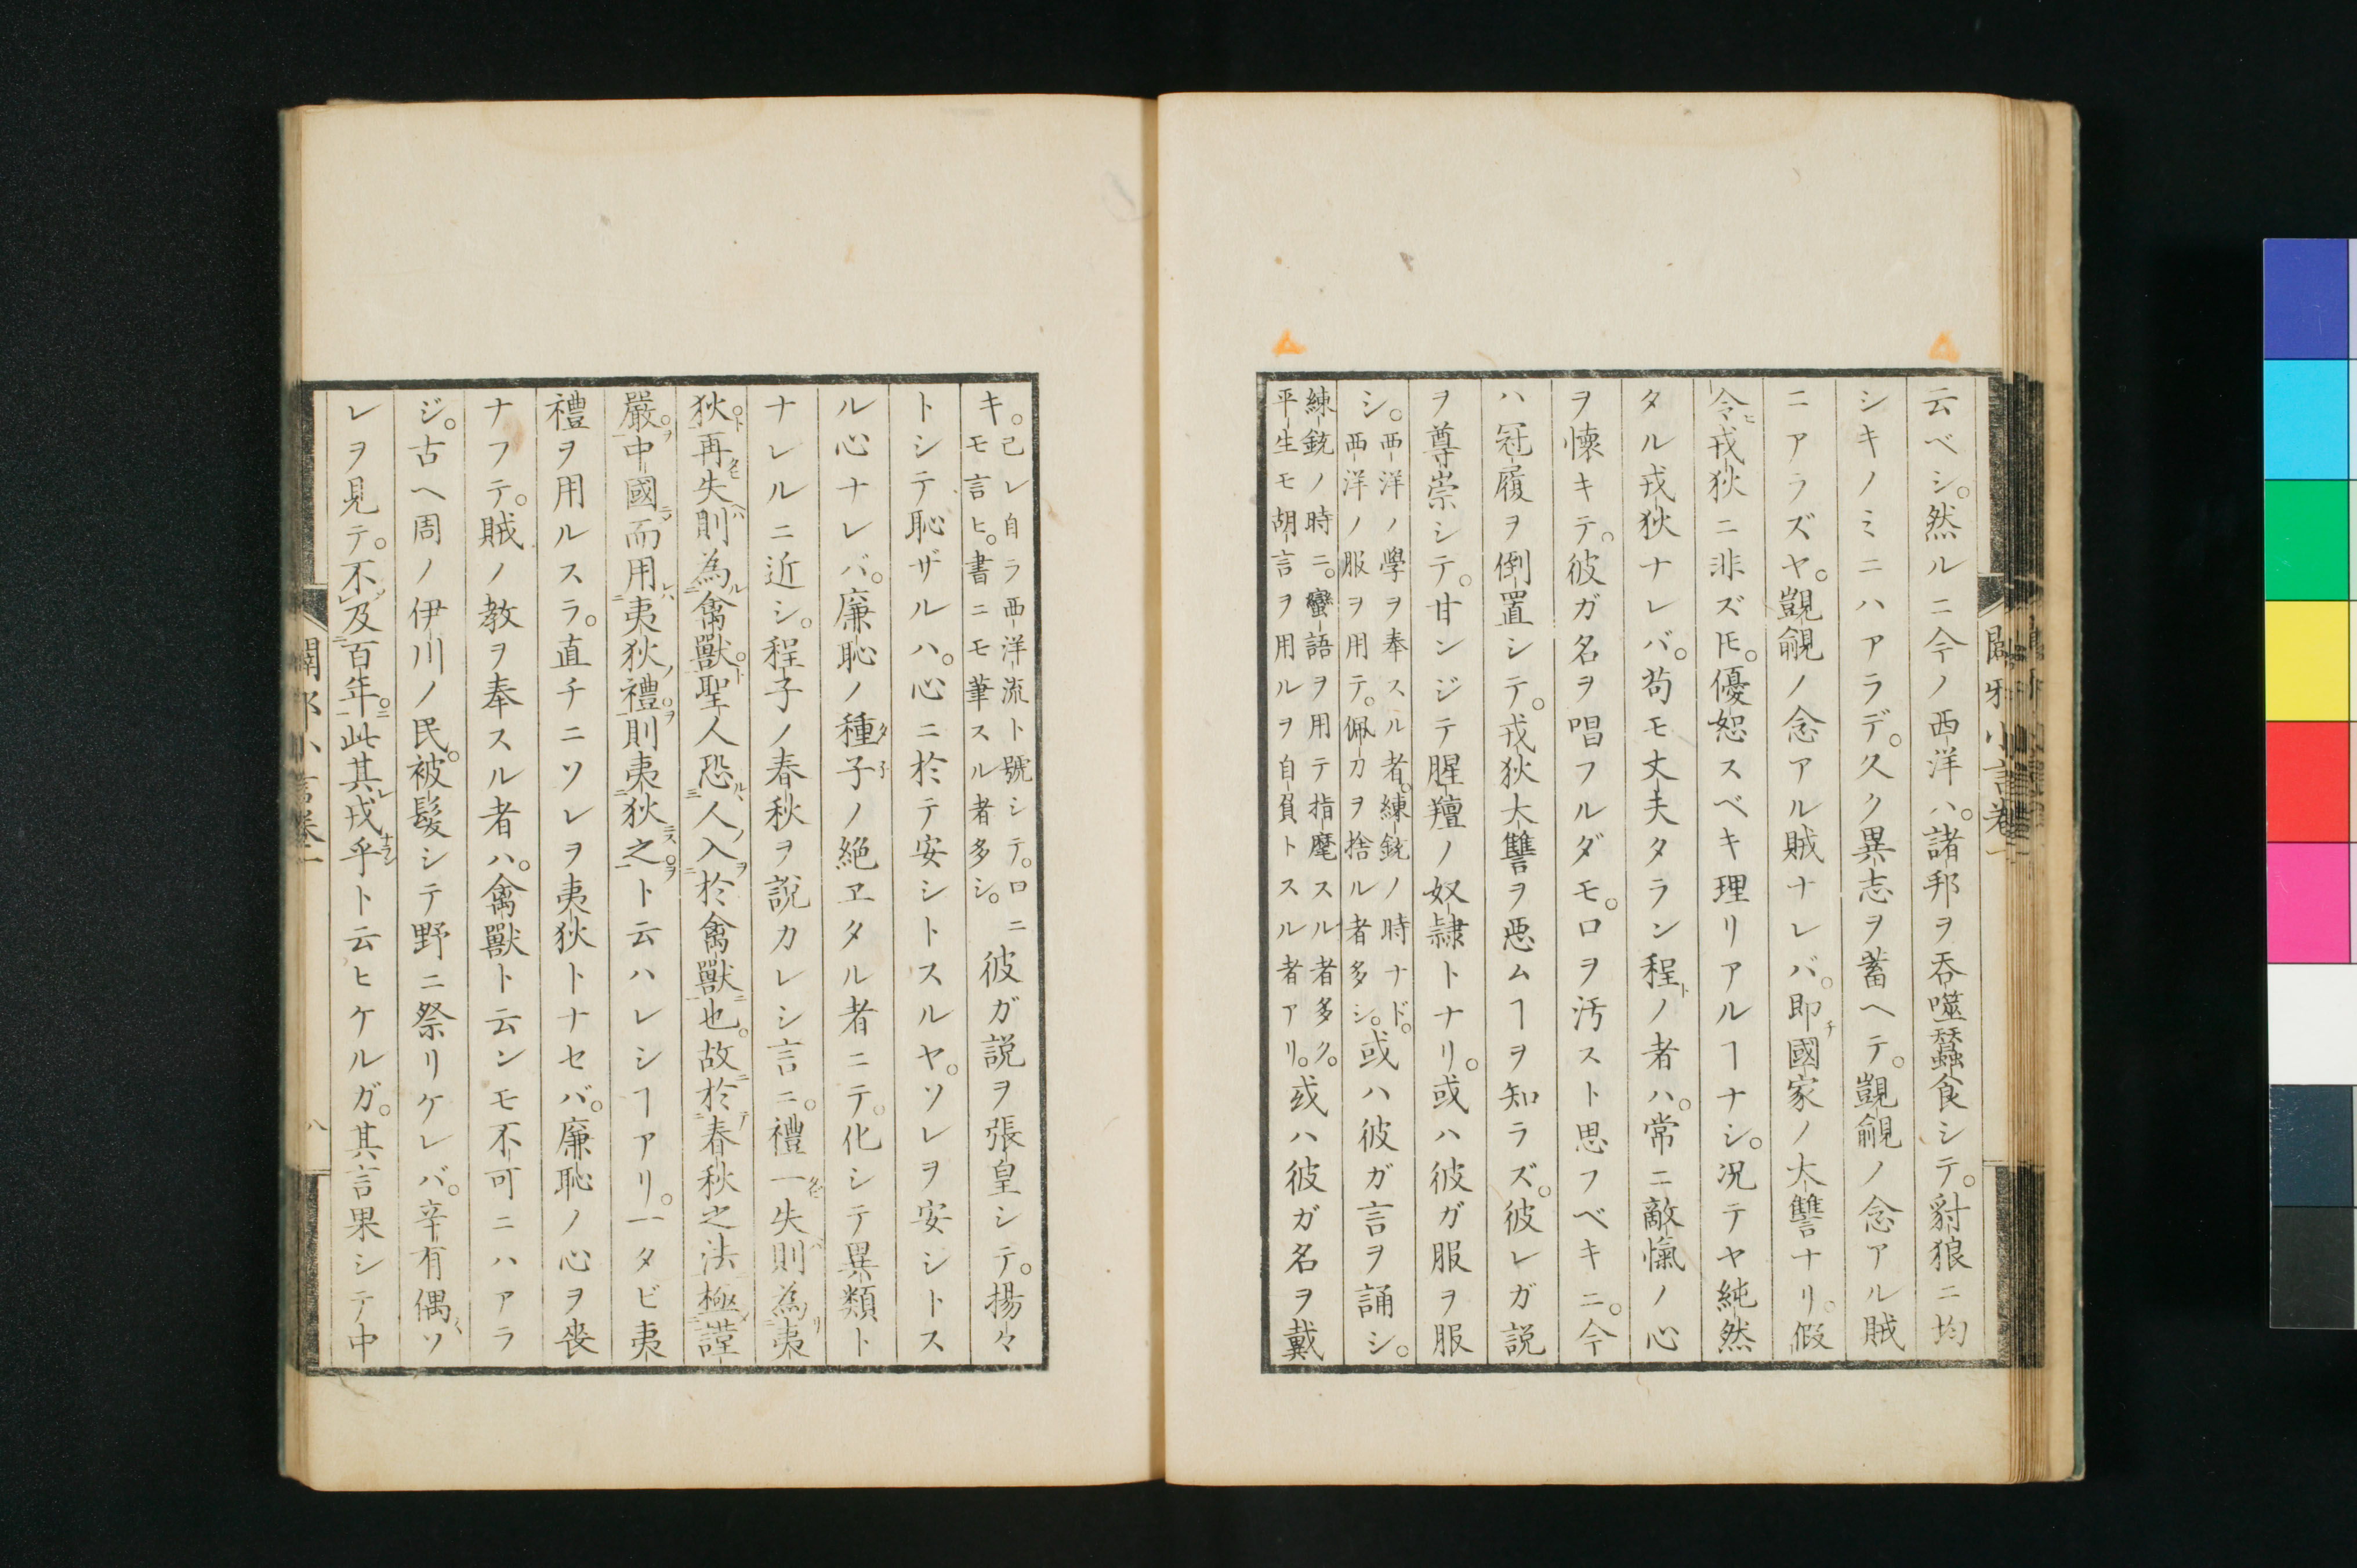 云ベシ。然ルニ今ノ西洋ハ。諸邦ヲ呑噬蠶食シテ。豺狼ニ均
シキノミニハアラデ。久ク異志ヲ蓄ヘテ。覬覦ノ念アル賊
ニアラズヤ。覬覦ノ念アル賊ナレバ。即チ國家ノ大讐ナリ。假
令ヒ戎狄ニ非ズㇳモ。優恕スベキ理リアルヿナシ。況テヤ純然
タル戎狄ナレバ。苟モ丈夫タラン程ノ者ハ。常ニ敵愾ノ心
ヲ懷キテ。彼ガ名ヲ唱フルダモ。口ヲ汚スト思フベキニ。今
ハ冠履ヲ倒置シテ。戎狄大讐ヲ惡ムヿヲ知ラズ。彼レガ説
ヲ尊崇シテ。甘ンジテ腥羶ノ奴隷トナリ。或ハ彼ガ服ヲ服
シ。西洋ノ學ヲ奉スル者。練銃ノ時ナド。西洋ノ服ヲ用テ。佩刀ヲ捨ル者多シ。或ハ彼ガ言ヲ誦シ。
練銃ノ時ニ。蠻語ヲ用テ指麾スル者多ク。平生モ胡言ヲ用ルヲ自負トスル者アリ。或ハ彼ガ名ヲ戴
闢邪小言卷一
キ。己レ自ラ西洋流ト號シテ。口ニモ言ヒ。書ニモ筆スル者多シ。彼ガ説ヲ張皇シテ。揚々
トシテ恥ザルハ。心ニ於テ安シトスルヤ。ソレヲ安シトス
ル心ナレバ。廉恥ノ種子ノ絶エタル者ニテ。化シテ異類ト
ナレルニ近シ。程子ノ春秋ヲ説カレシ言ニ。禮一失則為夷
狄再失則為禽獸聖人恐人入於禽獸也。故於春秋之法極謹
嚴中國而用夷狄禮則夷狄之ト云ハレシヿアリ。一タビ夷
禮ヲ用ルスラ。直チニソレヲ夷狄トナセバ。廉恥ノ心ヲ喪
ナフテ。賊ノ教ヲ奉スル者ハ。禽獸ト云ンモ不可ニハアラ
ジ。古ヘ周ノ伊川ノ民。被髮シテ野ニ祭リケレバ。辛有偶〻ソ
レヲ見テ。不及百年此其戎乎ト云ヒケルガ。其言果シテ中
闢邪小言卷一
八